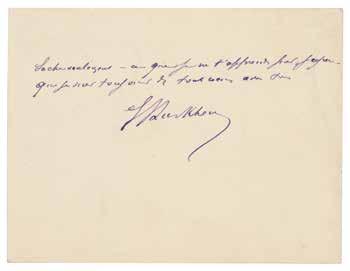 Sache seulement – ce que je ne t'apprends pas, j'espère –
que je suis toujours de tout cœur avec toi